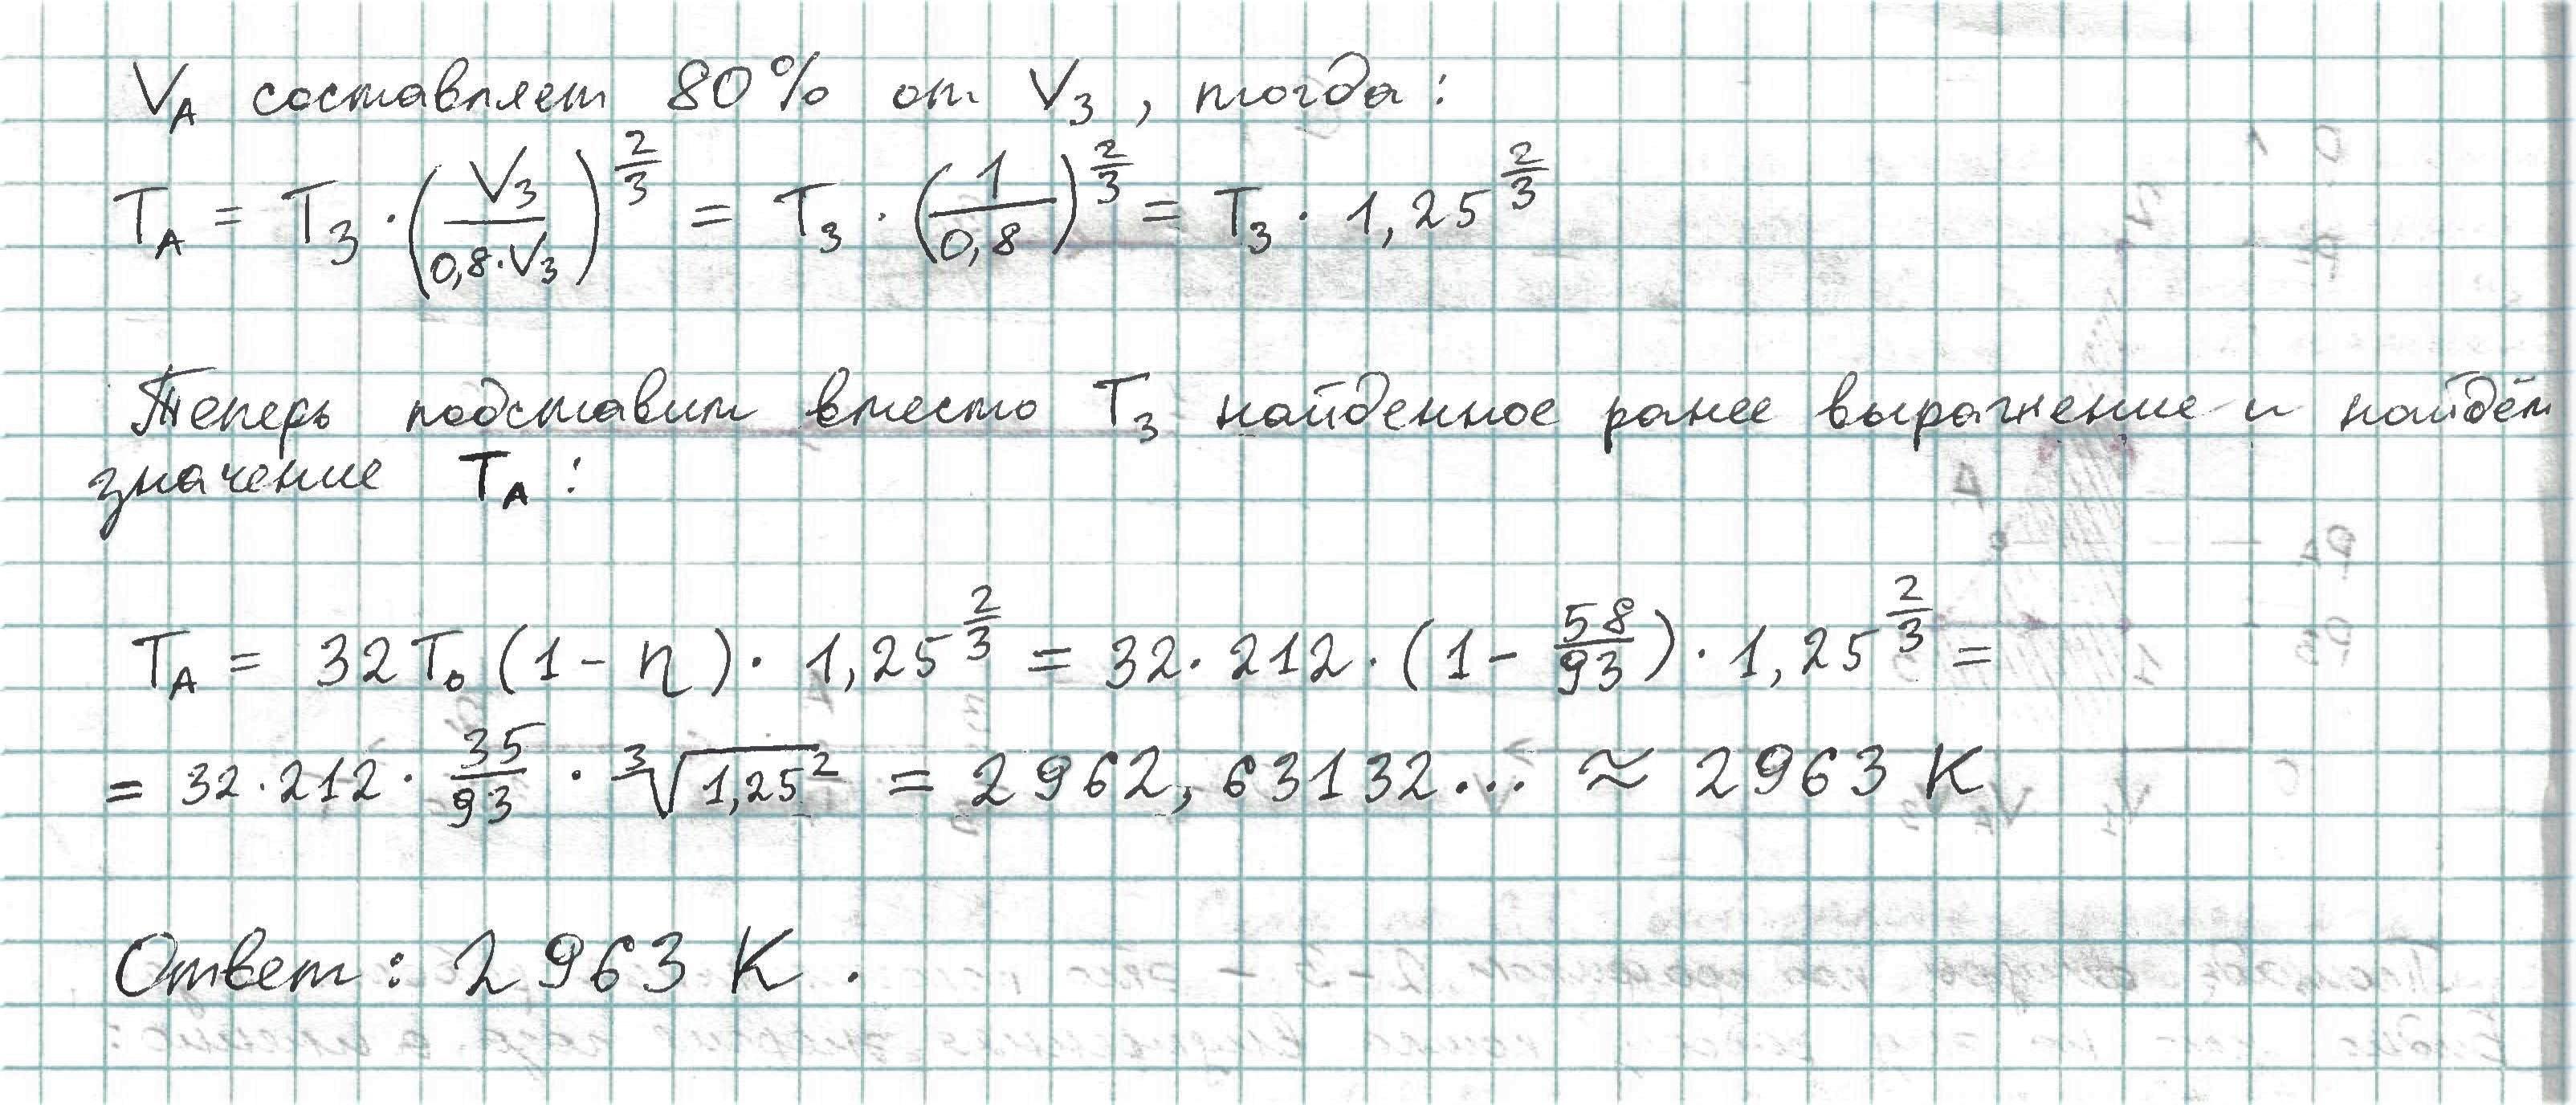 V_A составляет 80% от V_3, тогда:
T_A = T_3 · (V_3 / 0,8·V_3)^(2/3) = T_3 · (1 / 0,8)^(2/3) = T_3 · 1,25^(2/3)
Теперь подставим вместо T_3 найденное ранее выражение и найдём
значение T_A:
T_A = 32T_0 (1 - η) · 1,25^(2/3) = 32 · 212 · (1 - 58/93) · 1,25^(2/3) =
= 32 · 212 · 35/93 · ∛(1,25²) = 2962,63132... ≈ 2963 К
Ответ: 2963 К.